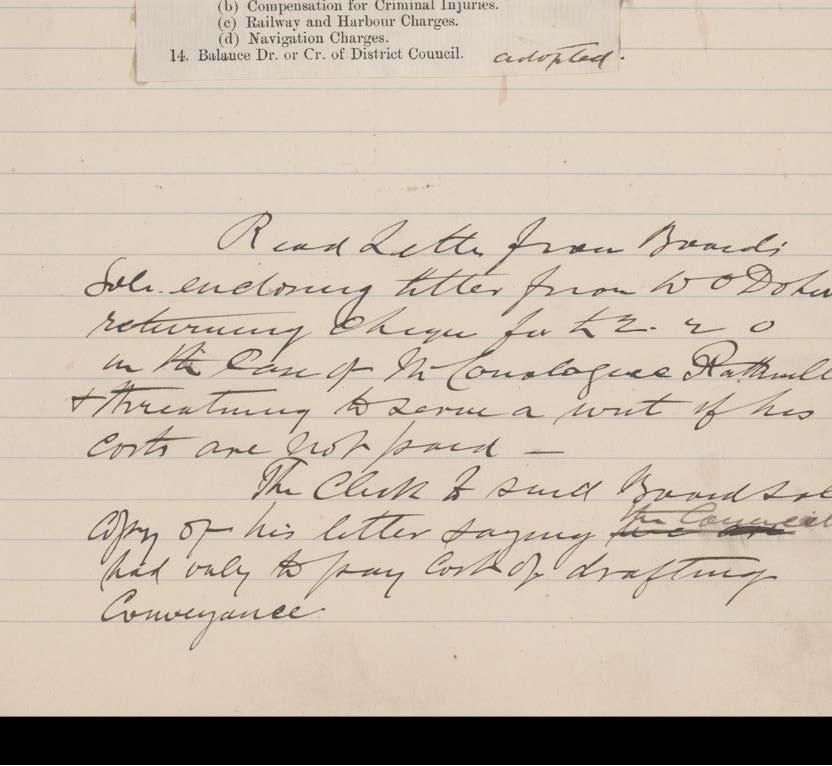 (b) Compensation for Criminal Injuries.
(c) Railway and Harbour Charges.
(d) Navigation Charges.
14. Balance Dr. or Cr. of District Council. adopted.
Read Letter from Boards
Solr. enclosing letter from W O Doher
returning Cheque for £2. 2 0
in the Case of Mr Conologue Rathmull
& threatening to serve a writ if his
costs are not paid —
The Clerk to send Board Sol
Copy of his letter saying the Council
had only to pay Cost of drafting
Conveyance